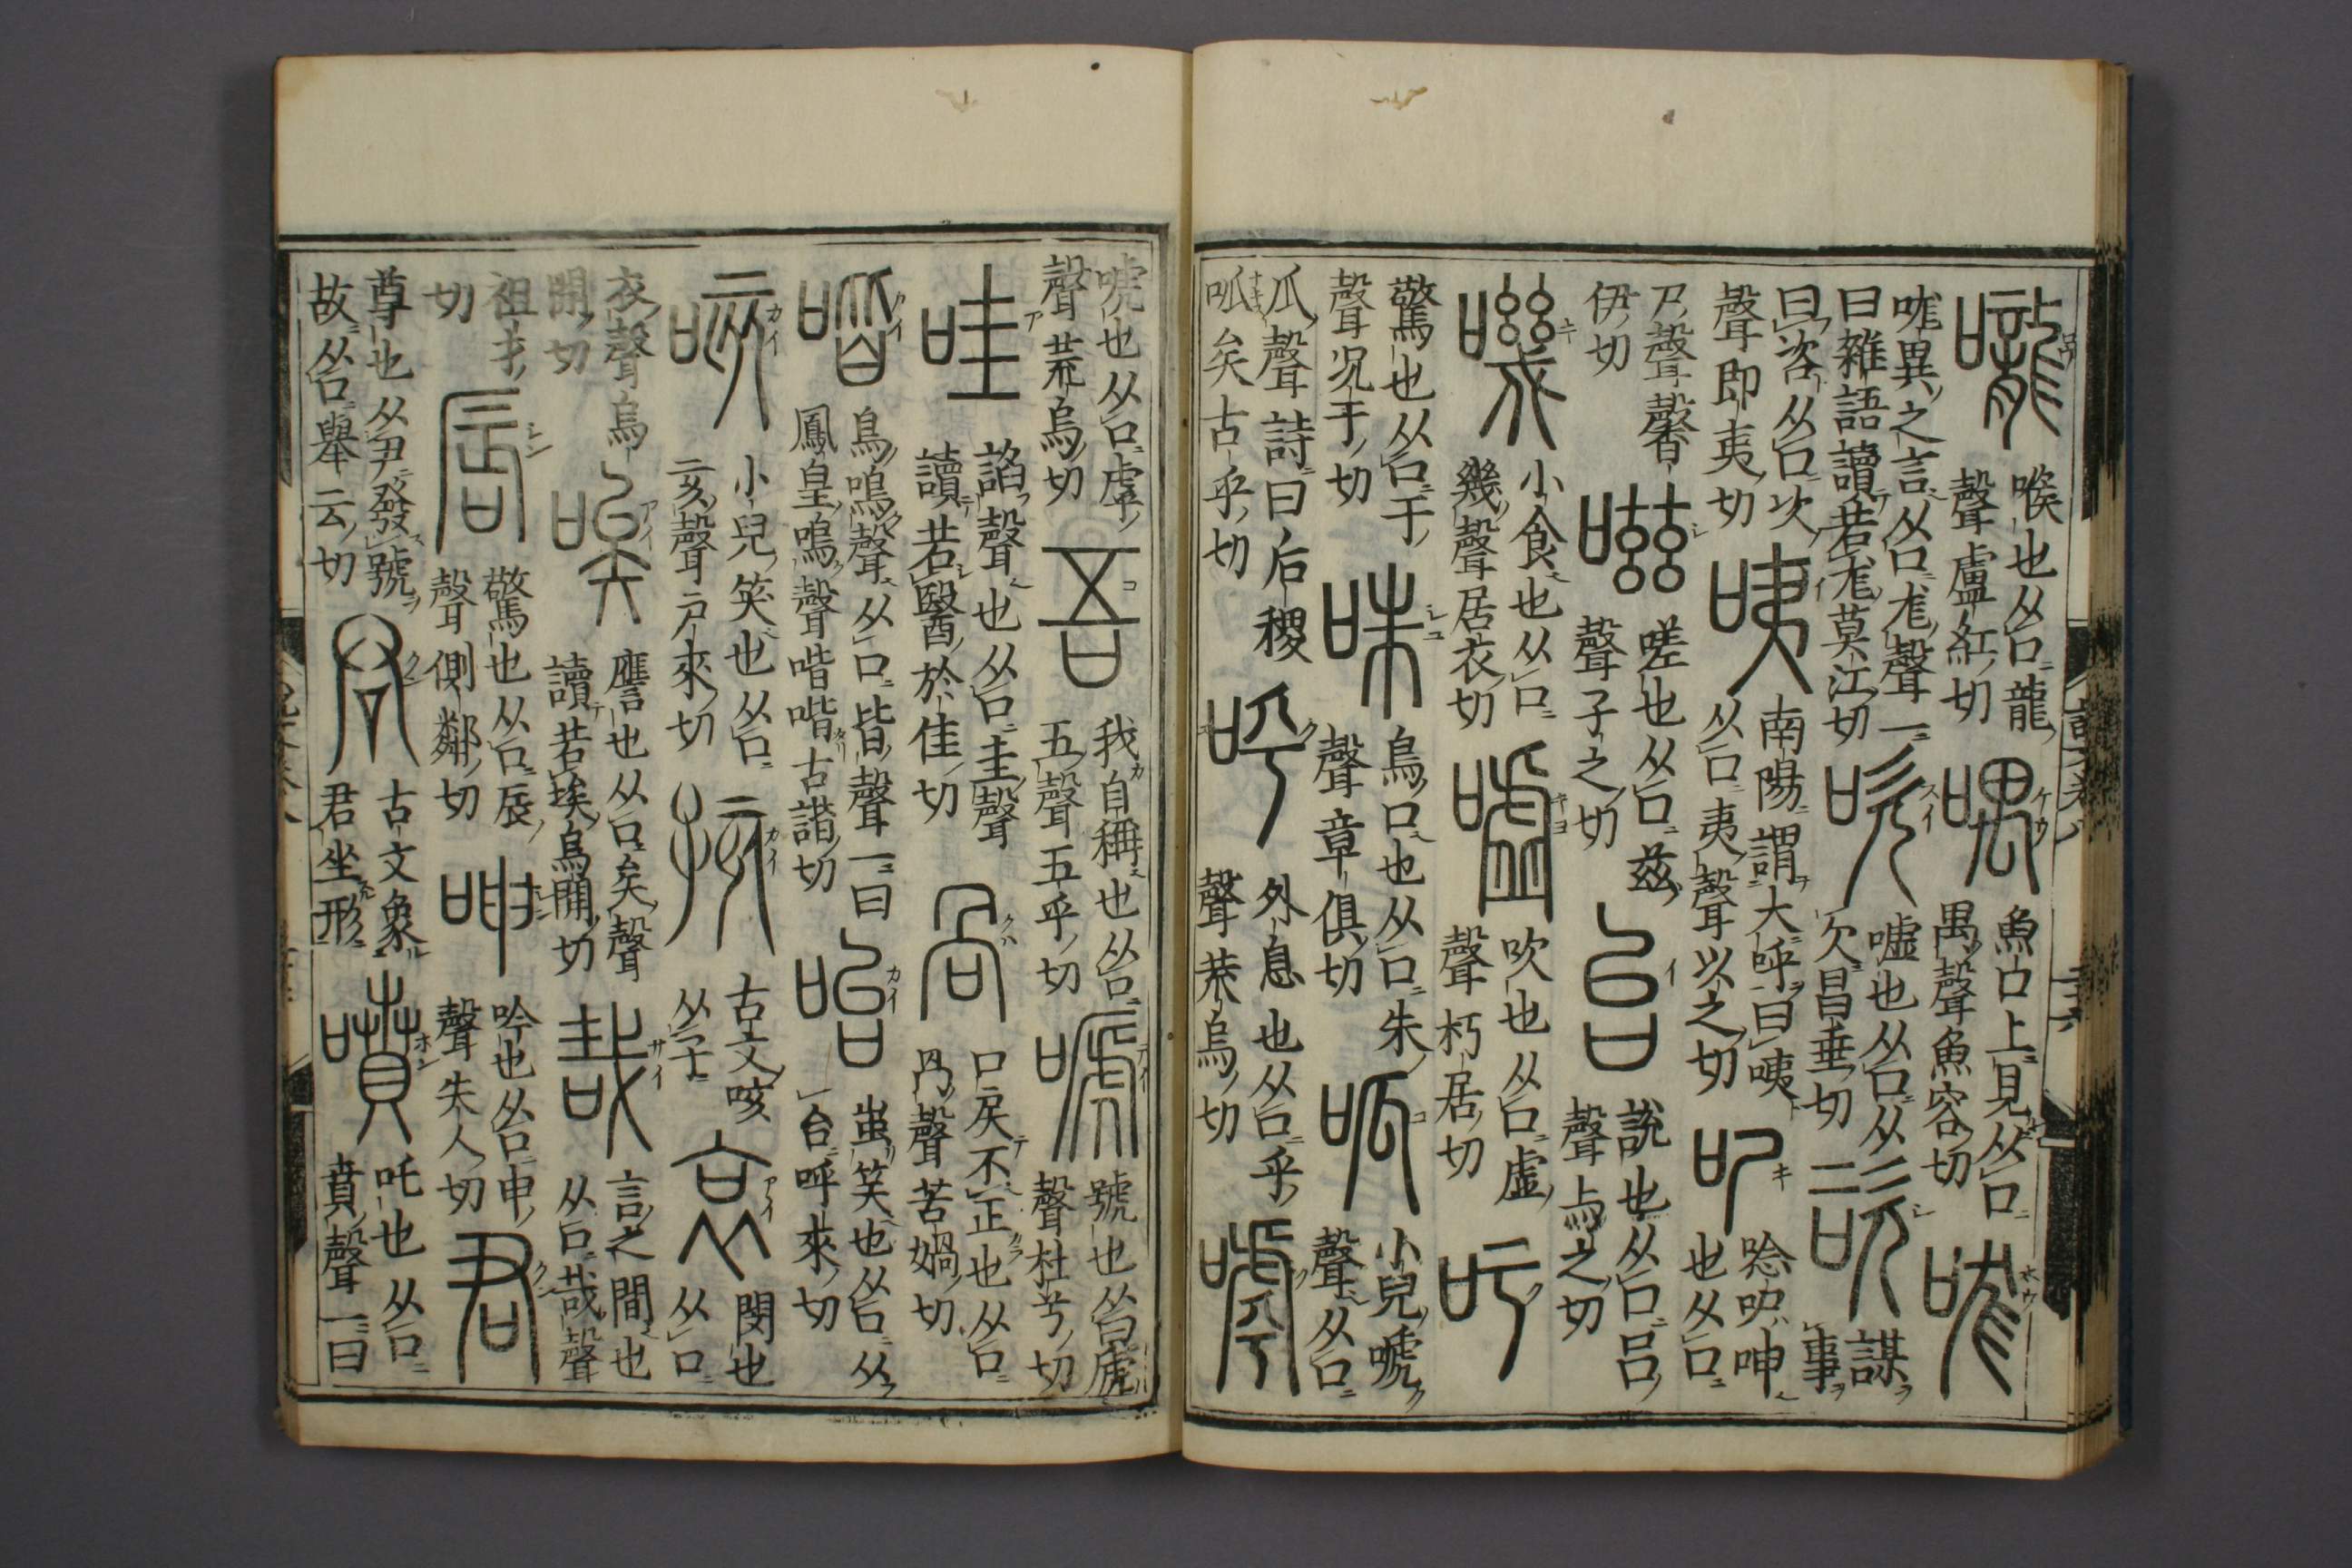 嚨喉也从口龍聲盧紅切喁魚口上見从口禺聲魚容切哤
哤異之言从口尨聲一曰雜語讀若尨莫江切吹噓也从口从欠昌垂切咨謀事
曰咨从口次聲即夷切咦南陽謂大呼曰咦从口夷聲以之切㕧唸㕧呻也从口
尸聲馨伊切嗞嗟也从口兹聲子之切台説也从口㠯聲与之切
嘰小食也从口幾聲居衣切噓吹也从口虛聲朽居切吁
驚也从口于聲況于切咮鳥口也从口朱聲章俱切呱小兒嗁聲从口
瓜聲詩曰后稷呱矣古乎切呼外息也从口乎聲荒烏切嘑
唬也从口虖聲荒烏切吾我自稱也从口五聲五乎切嗁號也从口虒聲杜兮切
哇諂聲也从口圭聲讀若醫於佳切咼口戾不正也从口冎聲苦媧切
喈鳥鳴聲从口皆聲一曰鳳皇鳴聲喈喈古諧切咍蚩笑也从口从台呼來切
咳小兒笑也从口亥聲戶來切孩古文咳从子哀閔也从口
衣聲烏開切唉譍也从口矣聲讀若埃烏開切哉言之間也从口𢦏聲
祖才切唇驚也从口辰聲側鄰切呻吟也从口申聲失人切君
尊也从尹發號故从口舉云切古文象君坐形噴吒也从口賁聲一曰